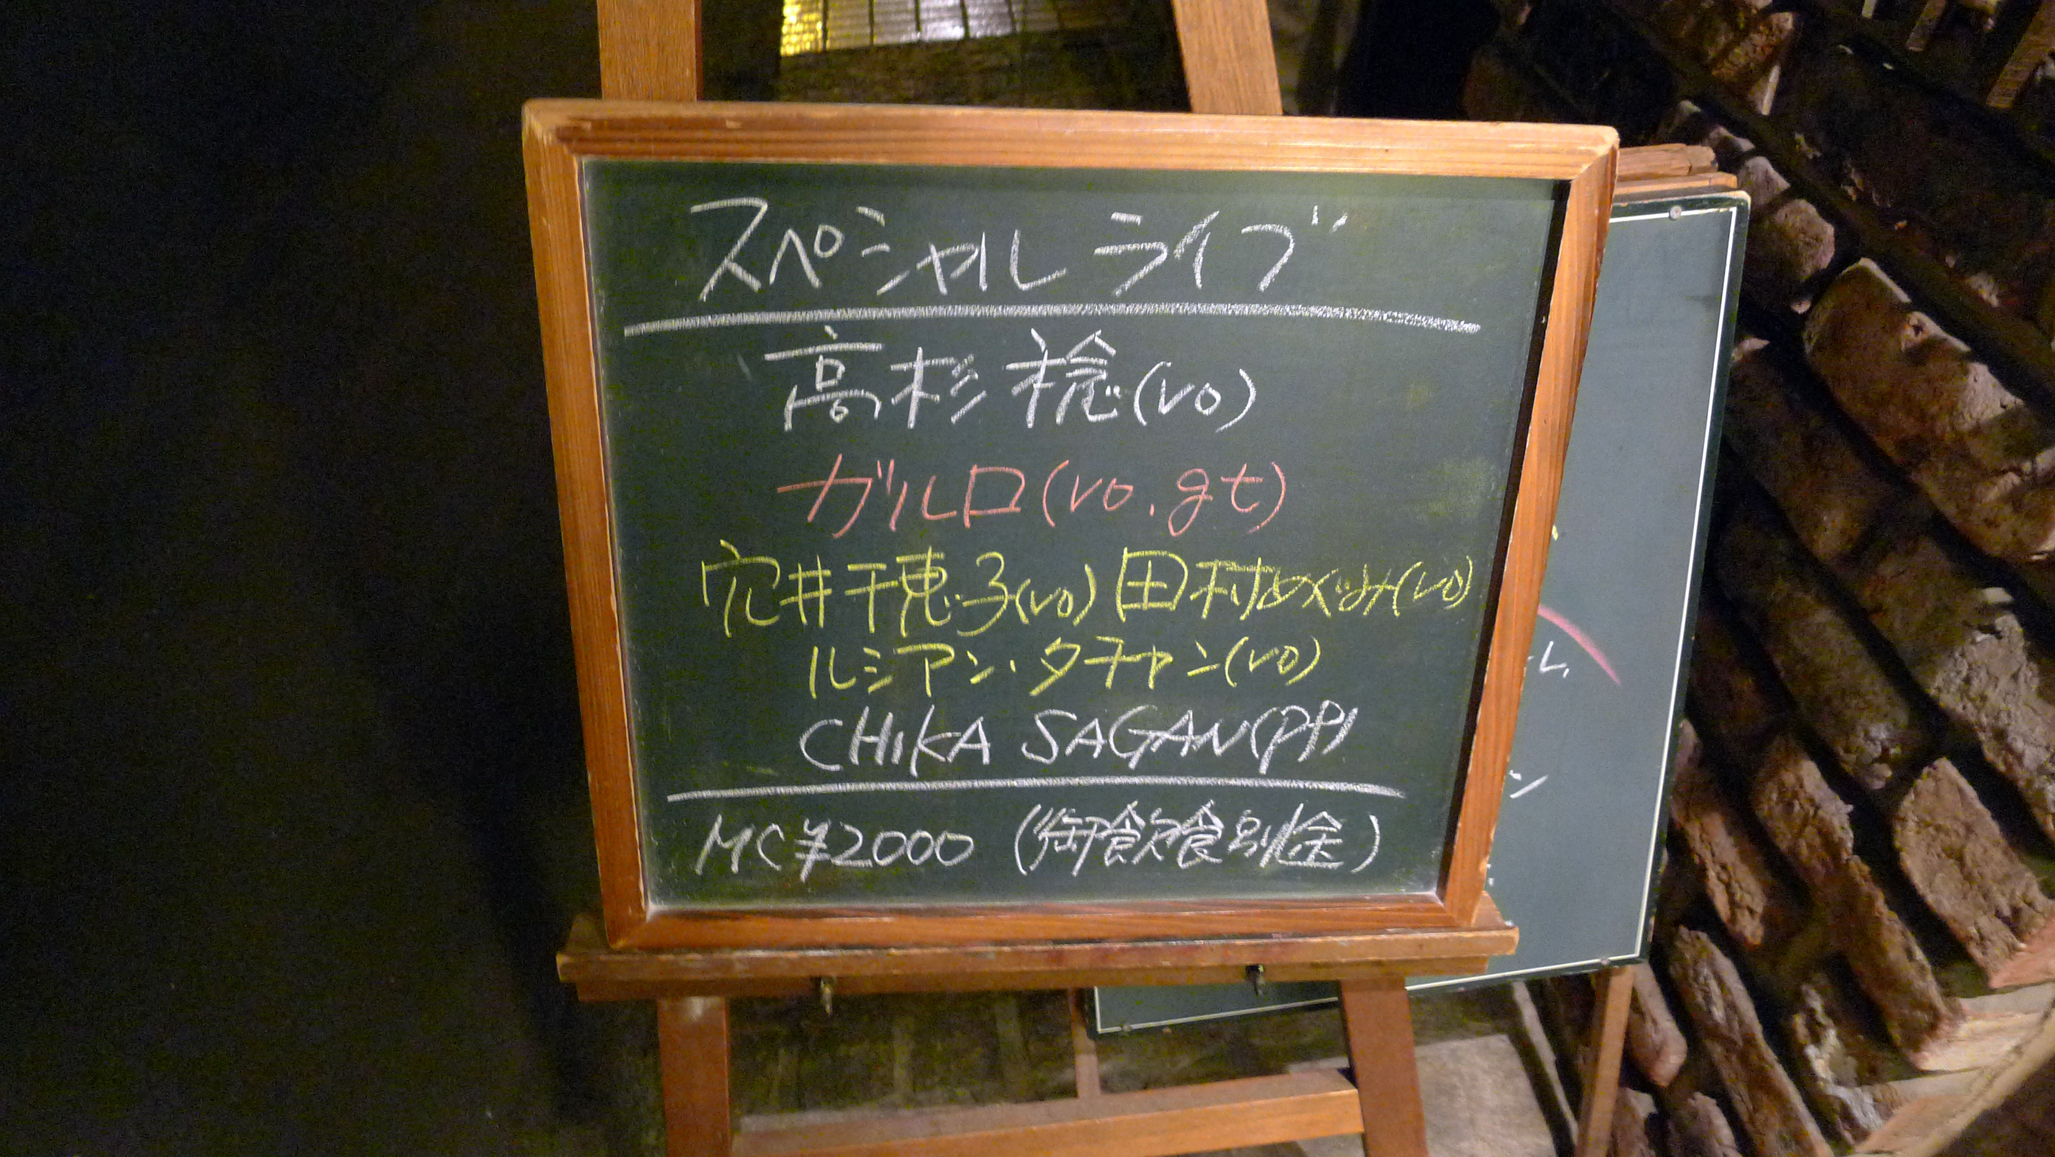 スペシャル ライブ
高杉 稔(vo)
ガルロ(vo.gt)
穴井千穂子(vo) 田村めぐみ(vo)
ルシアン・タチャン(vo)
CHIKA SAGAN(pf)
MC¥2000 (御飲食別途)